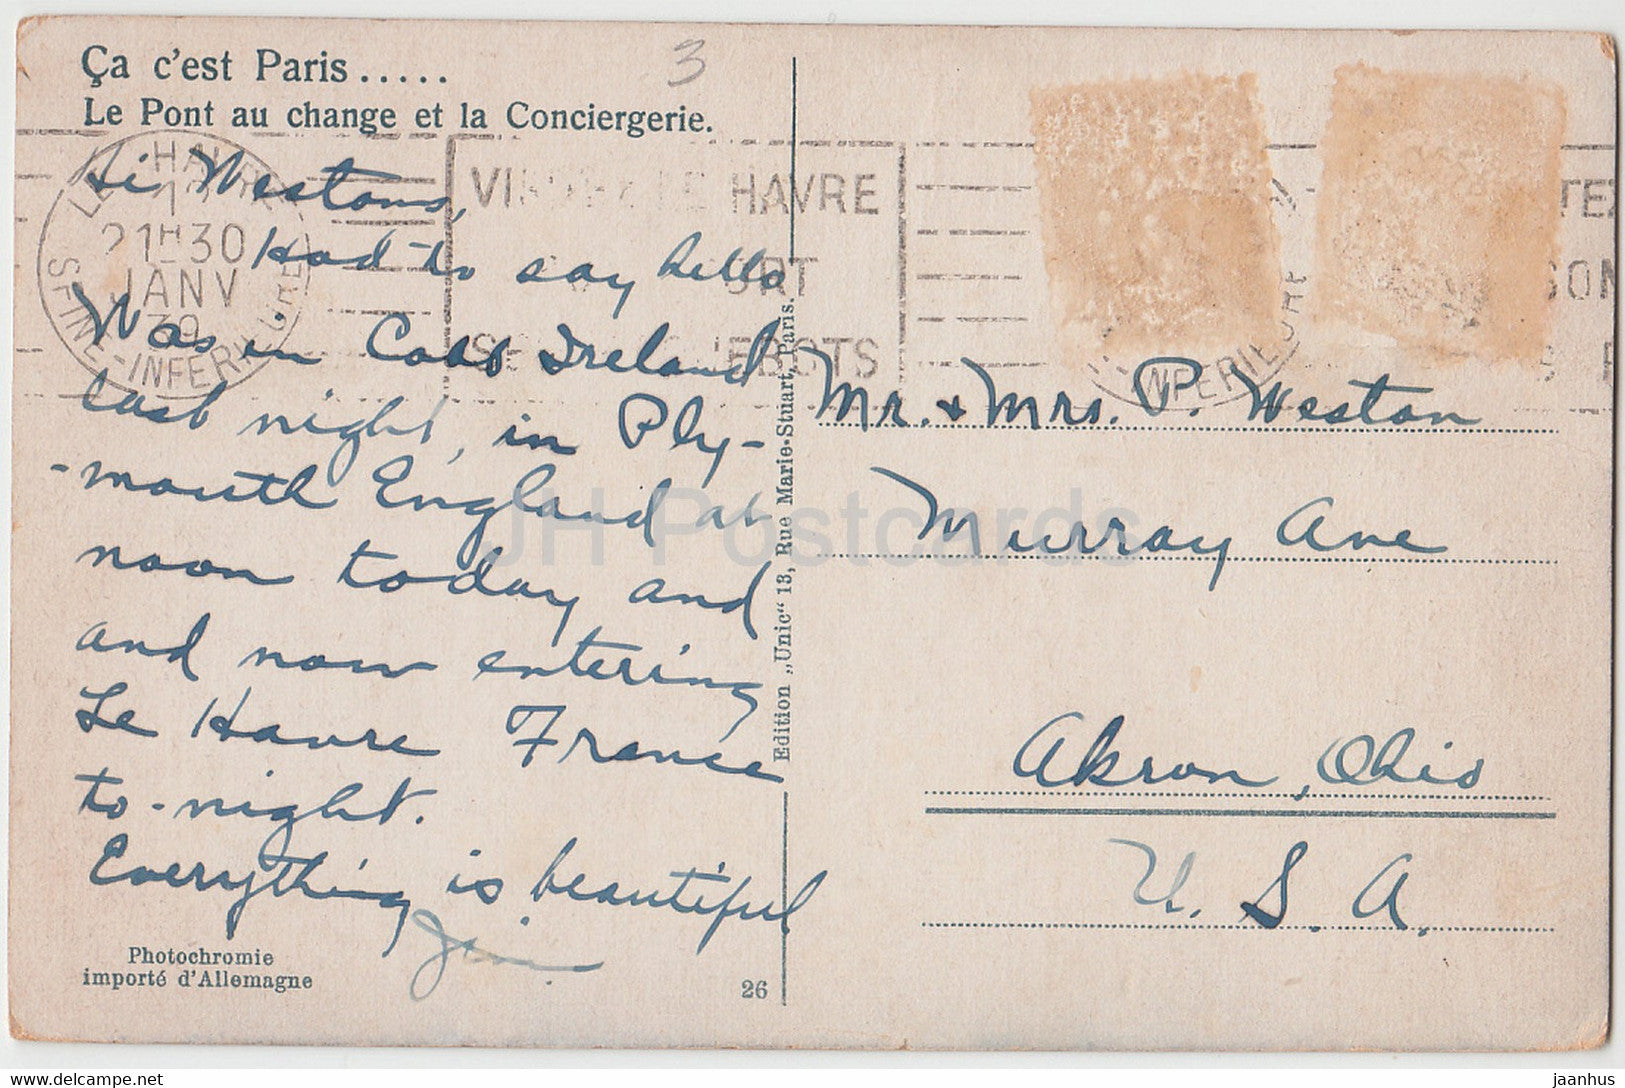 Ça c'est Paris.....
Le Pont au change et la Conciergerie.
3
LE HAVRE
21H30
JANV
39
SEINE-INFERIEURE
LE HAVRE
PORT
Hi Westons,
Had to say hello
Was in Cobb Ireland
last night, in Ply-
-mouth England at
noon today and
and now entering
Le Havre France
to-night.
Everything is beautiful
Jim
Photochromie
importé d'Allemagne
26
Edition „Unic" 13, Rue Marie-Stuart, Paris.
Mr. & Mrs. P. Weston
Murray Ave
Akron, Ohio
U. S. A.
JH Postcards
https://www.delcampe.net
jaanhus